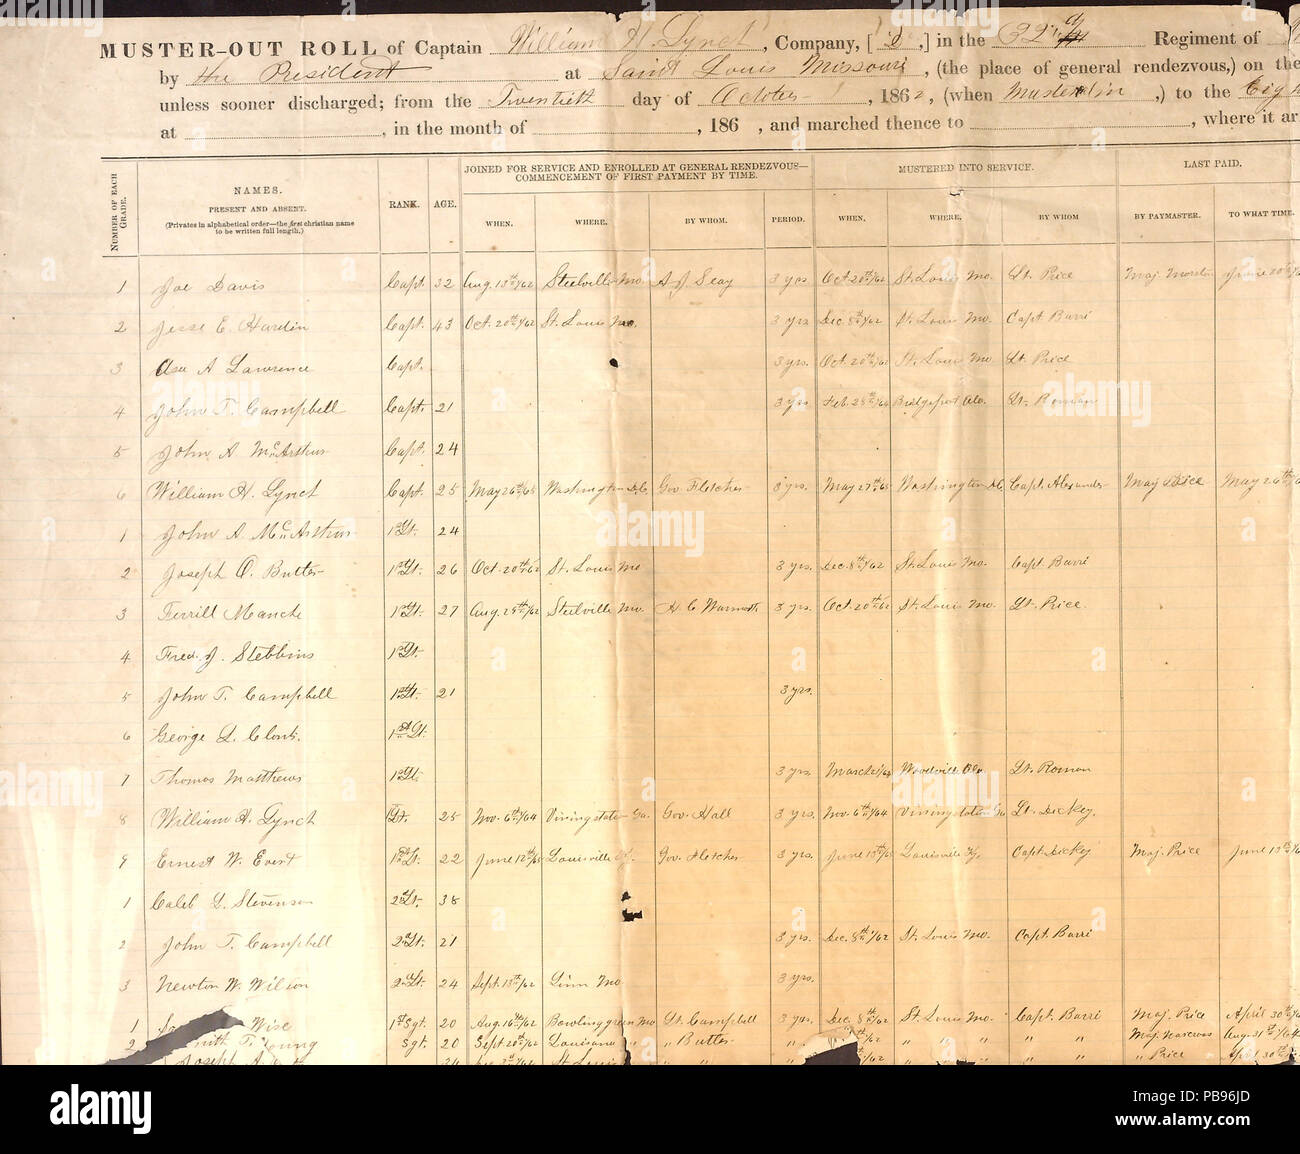 MUSTER-OUT ROLL of Captain William H. Lynch, Company, [ D ,] in the 32d Regiment of
by the President at Saint Louis Missouri, (the place of general rendezvous,) on the
unless sooner discharged; from the Twentieth day of October, 1862, (when Mustered in,) to the
at , in the month of , 186 , and marched thence to , where it ar
NUMBER OF EACH GRADE.
NAMES.
PRESENT AND ABSENT.
(Privates in alphabetical order—the first christian name to be written full length.)
RANK.
AGE.
JOINED FOR SERVICE AND ENROLLED AT GENERAL RENDEZVOUS—COMMENCEMENT OF FIRST PAYMENT BY TIME.
MUSTERED INTO SERVICE.
LAST PAID.
WHEN. WHERE. BY WHOM. PERIOD. WHEN. WHERE. BY WHOM BY PAYMASTER. TO WHAT TIME.
1 Joe Davis Capt. 32 Aug. 13th/62 Steelville Mo. A J Seay 3 yrs Oct 20th/62 St. Louis Mo. Lt. Price Maj. June 30th/6
2 Jesse E. Hardin Capt. 43 Oct. 20th/62 St. Louis Mo. 3 yrs Dec. 8th/62 St. Louis Mo. Capt Barri
3 Asa A Lawrence Capt. 3 yrs. Oct 20th/62 St. Louis Mo Lt. Price
4 John T. Campbell Capt. 21 3 yrs Feb. 28th/64 Bridgeport Ala. Lt. Roman
5 John A McArthur Capt. 24
6 William H. Lynch Capt. 25 May 26th/65 Washington D.C. Gov. Fletcher 3 yrs. May 27th/65 Washington D.C. Capt. Alexander Maj Price May 26th/6
1 John A. McArthur 1st Lt. 24
2 Joseph O. Butter 1st Lt. 26 Oct. 20th/62 St. Louis Mo 3 yrs. Dec. 8th/62 St. Louis Mo. Capt Barri
3 Terrill Manche 1st Lt. 27 Aug. 25th/62 Steelville Mo. H. C Warmoth 3 yrs. Oct. 20th/62 St. Louis Mo Lt. Price
4 Fred. J. Stebbins 1st Lt.
5 John T. Campbell 1st Lt. 21 3 yrs.
6 George L. Clonts 1st Lt.
7 Thomas Matthews 1st Lt. 3 yrs March 21/64 Woodville Ala Lt. Roman
8 William H. Lynch 1st Lt. 25 Nov. 6th/64 Vining station Ga. Gov. Hall 3 yrs. Nov. 6th/64 Vining station Ga Lt. Dickey.
9 Ernest W. Evert 1st Lt. 22 June 12th/65 Louisville Ky. Gov. Fletcher 3 yrs. June 13th/65 Louisville Ky. Capt Dickey Maj. Price June 13th/6
1 Caleb L. Stevenson 2d Lt. 38
2 John T. Campbell 2d Lt. 21 3 yrs. Dec. 8th/62 St. Louis Mo. Capt Barri
3 Newton W. Wilson 2d Lt. 24 Sept. 13th/62 Linn Mo 3 yrs.
1 Wise 1st Sgt. 20 Aug. 16th/62 Bowling green Mo Lt. Campbell 3 yrs. Dec 8th/62 St. Louis Mo. Capt. Barri Maj. Price April 30th/6
2 Smith T. Young Sgt. 20 Sept 20th/62 Louisiana " " Butter " /62 " " " " " Maj. Aug 31st/64
Joseph A. 24 St. Louis " /62 " " " " " " Price April 30th
alamy
Image ID: PB96JD
www.alamy.com